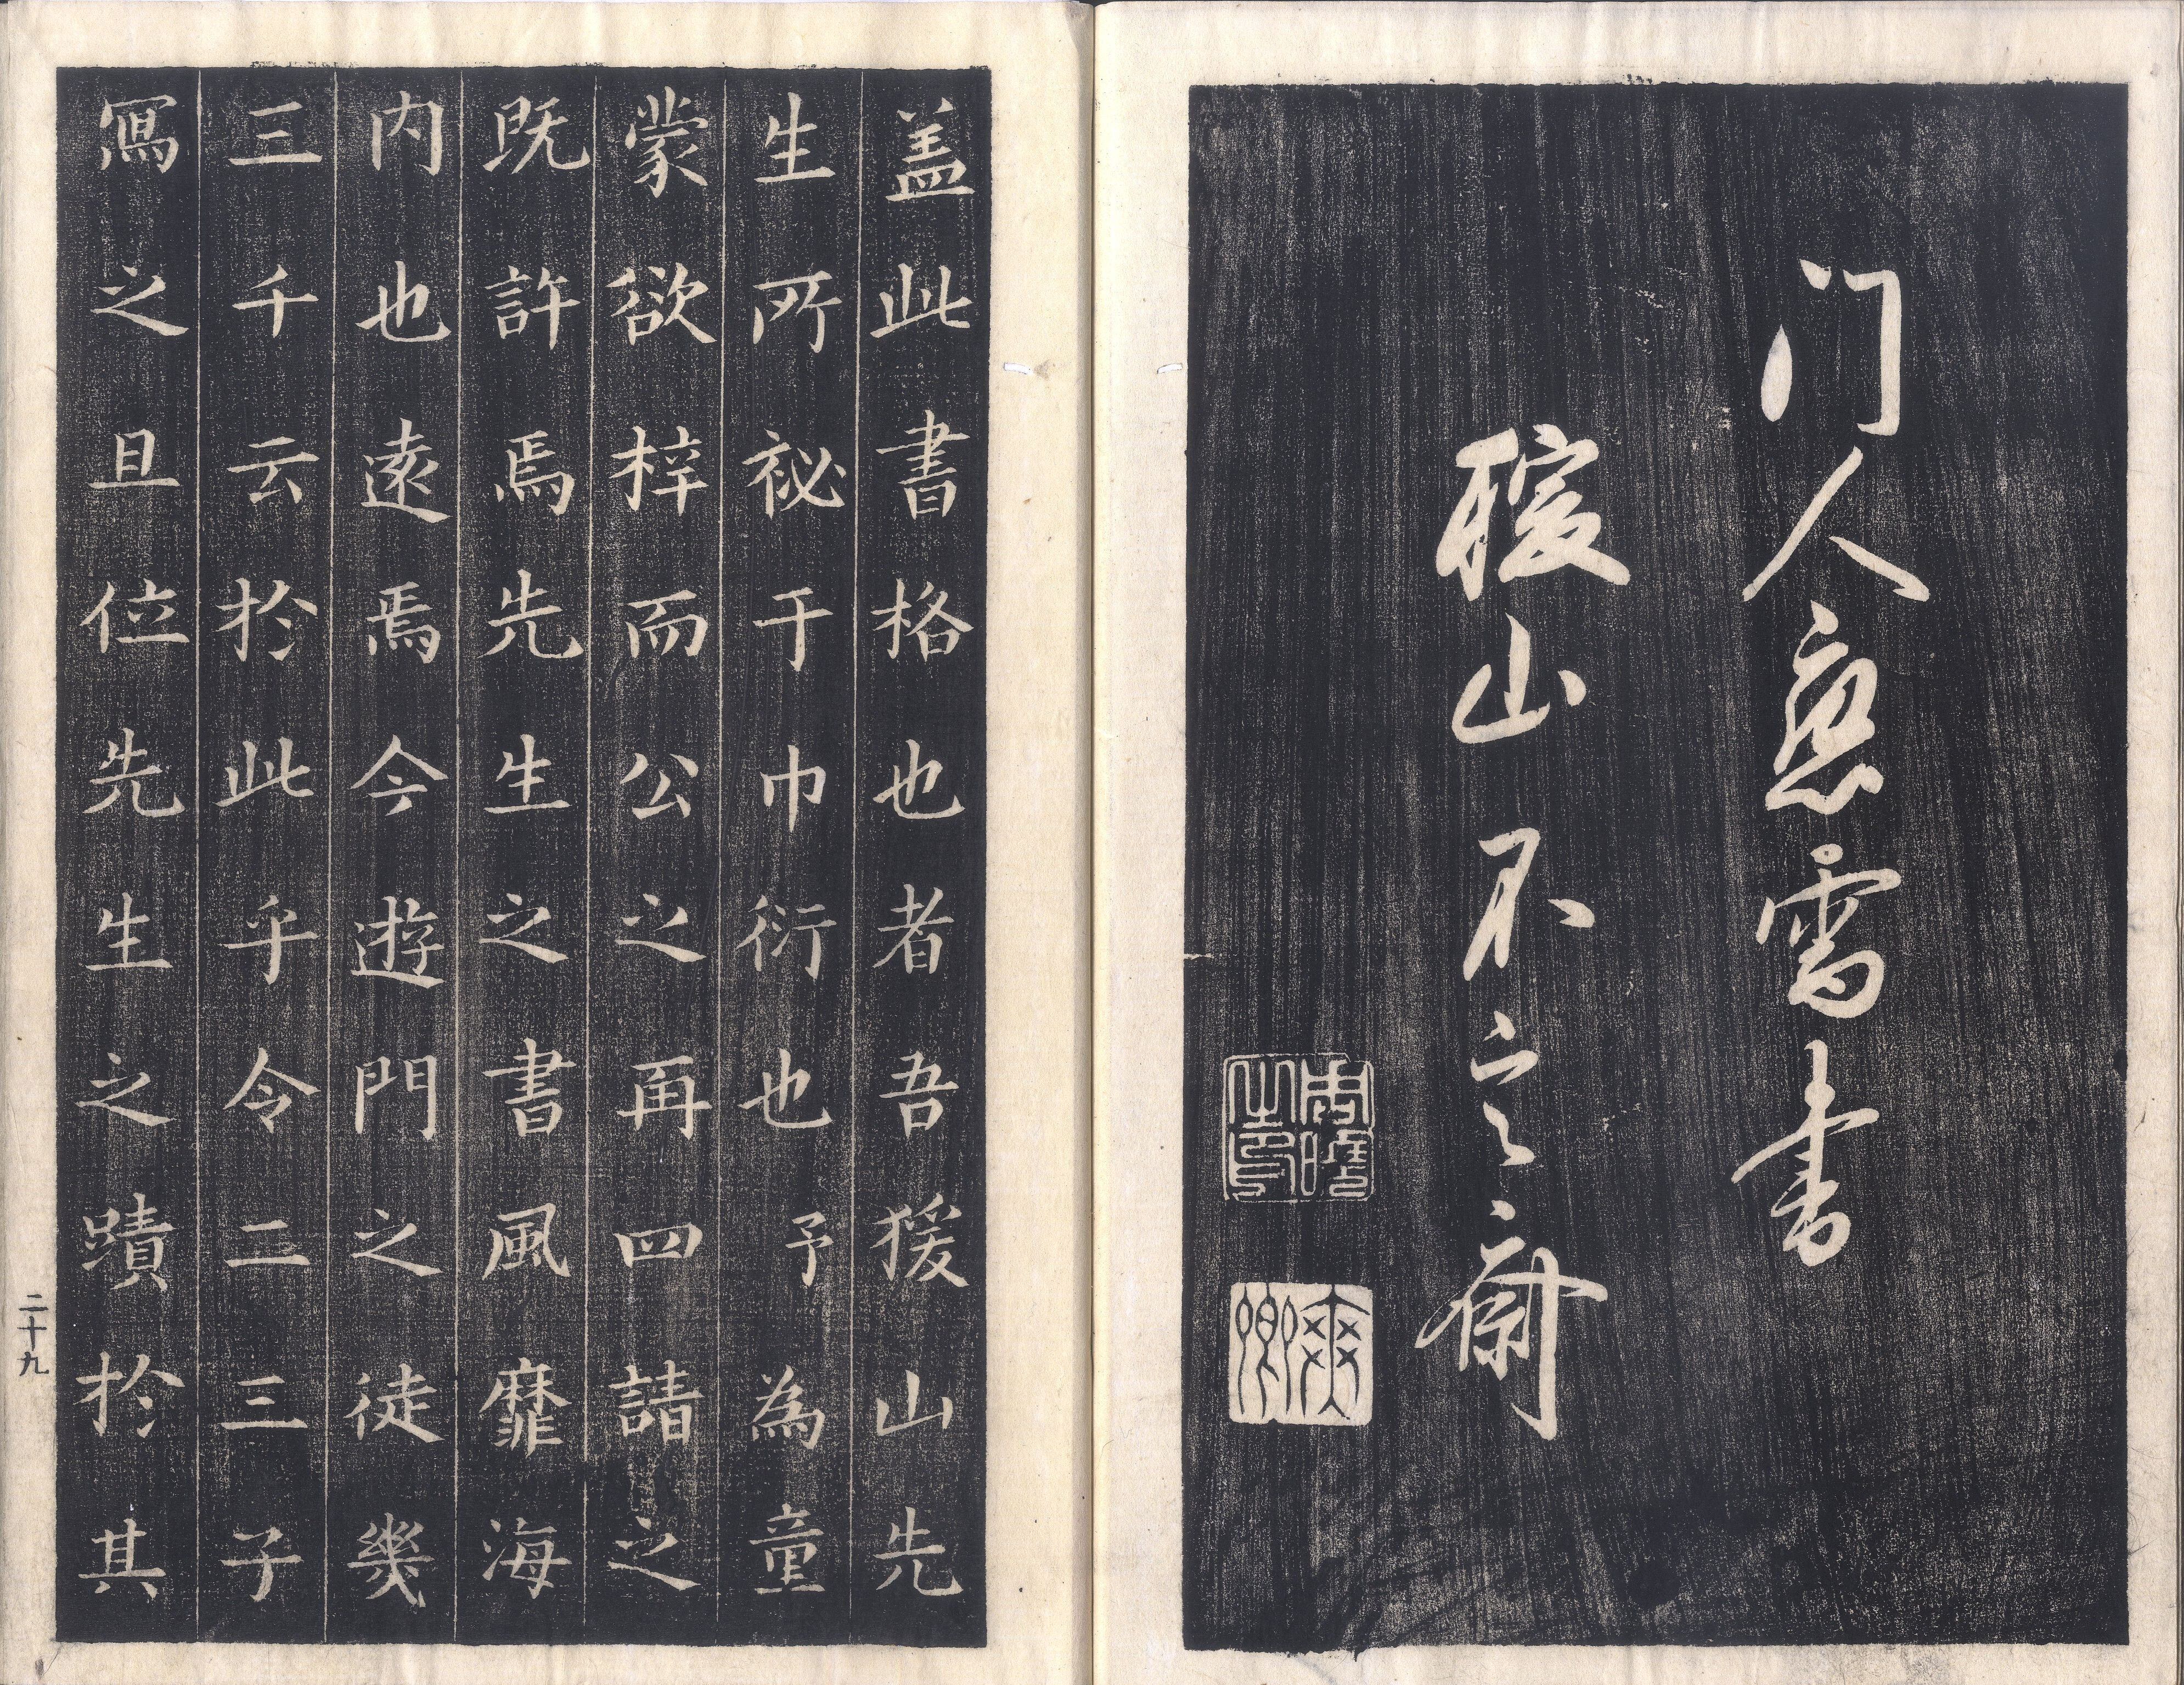 門人意雪書
猨山不言之齋
爽卿
盖此書格也者吾猨山先
生所祕于巾衍也予為童
蒙欲梓而公之再四請之
既許焉先生之書風靡海
内也遠焉今遊門之徒幾
三千云於此乎令二三子
寫之且位先生之蹟於其
二十九